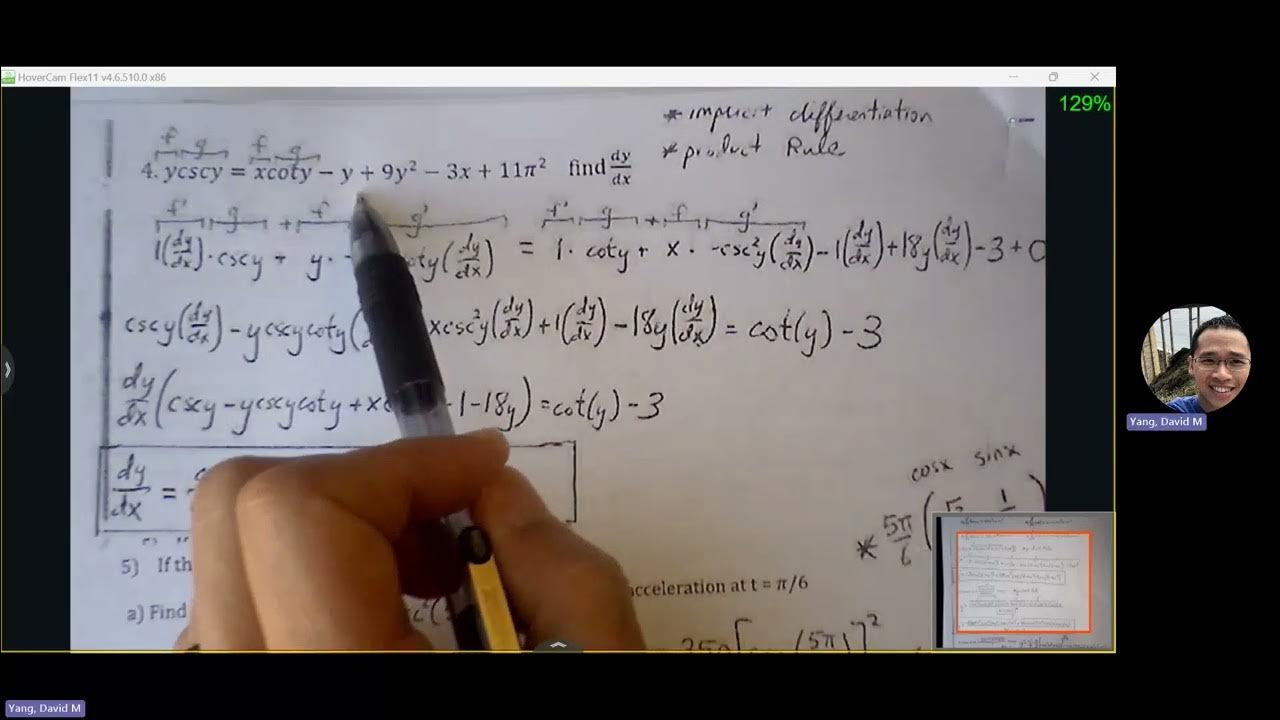 HoverCam Flex11 v4.6.510.0 x86
129%
* implicit differentiation
* product Rule
f g f g
4. ycscy = xcoty − y + 9y² − 3x + 11π² find dy/dx
f' g + f g' f' g + f g'
1(dy/dx)·cscy + y· - coty(dy/dx) = 1·coty + x·-csc²y(dy/dx) − 1(dy/dx) + 18y(dy/dx) − 3 + 0
cscy(dy/dx) − ycscycoty( xcsc²y(dy/dx) + 1(dy/dx) − 18y(dy/dx) = cot(y) − 3
dy/dx (cscy − ycscycoty + xc -1-18y) = cot(y) − 3
dy/dx =
cosx sinx
* 5π/6 (
5) If th
acceleration at t = π/6
a) Find
(5π )]²
Yang, David M
Yang, David M